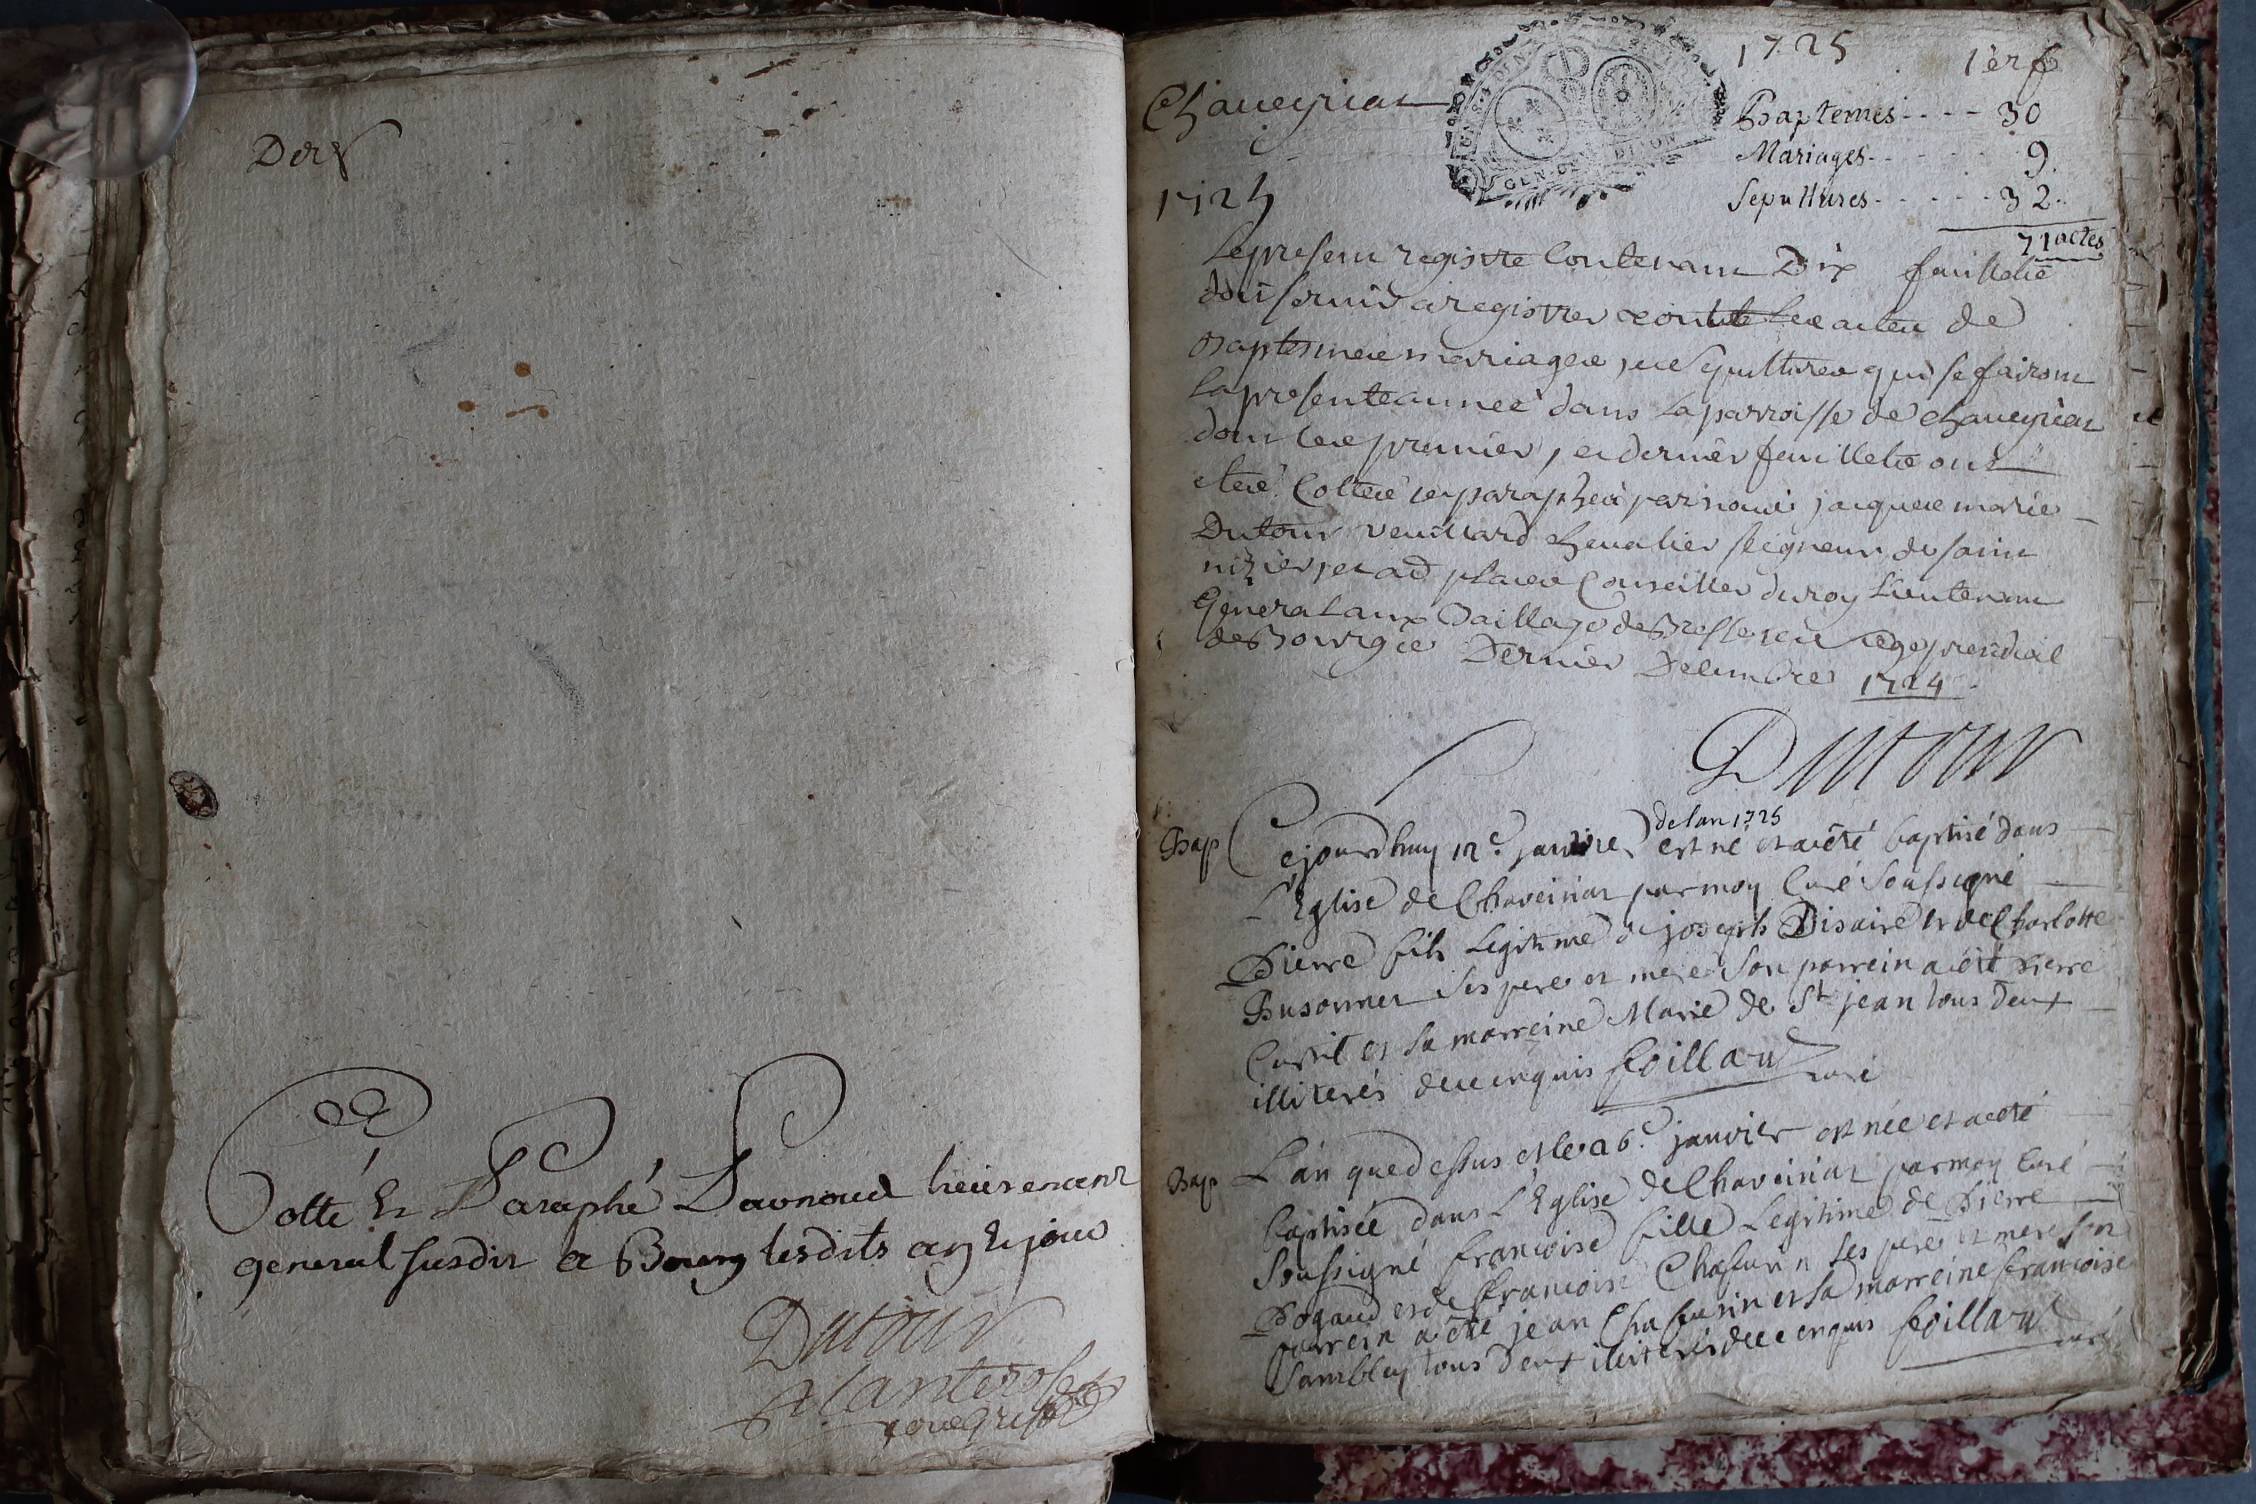 Der
Cotté Et Paraphé Parnoud lieutenent
general susdit a Bourg lesdits an Et jour
Dutour
Chaveyriat
1725
GEN DE DIJON
1725
1er f
Baptemes - - - - 30
Mariages - - - - 9.
Sepultures - - - - 32.
71 actes
1725
Le present registre Contenant Dix feuillets
doit servir a registrer toute les actes de
Baptesmes mariages, et sepultures qui se fairont
la presente année dans la parroisse de chaveyriat
dont les premier, et dernier feuillets ont
etée Cottée et paraphéé par nous jacques marie
Dutour veuillard chevalier seigneur de saint
nizier, et ad places Conseiller du roy Lieutenant
General aux Baillage de Bresse, et siege presidial
de Bourg ce Dernier Decembre 1724
Dutour
Bap Cejourdhuy 12e. janvier de lan 1725 est né et a eté baptisé dans
L'Eglise de Chaveiriat par moy Curé soussigné
Pierre fils Legitime de joseph Disaire et de Charlotte
Busonnet ses pere et mere son parrein a été Pierre
Curtil et sa marreine Marie de St jean tous deux
illiterés de ce enquis feillard curé
Bap L'an que dessus et le 26e. janvier est née et a eté
baptisée dans L'Eglise de Chaveiriat par moy Curé
soussigné francoise fille Legitime de Pierre
Pogaud et de francoise Chafurin ses pere et mere son
parrein a été jean Chafurin et sa marreine francoise
Sambley tous deux illiterés de ce enquis feillard curé